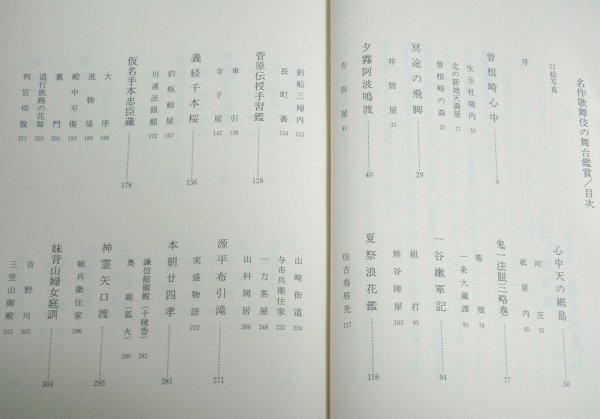 名作歌舞伎の舞台鑑賞／目次
口絵写真
序
曽根崎心中……9
生玉社境内 10
北の新地天満屋 17
曽根崎の森 25
冥途の飛脚……29
井筒屋 31
夕霧阿波鳴渡……40
吉田屋 41
心中天の網島……50
河庄 52
紙屋内 65
鬼一法眼三略巻……77
菊畑 78
一条大蔵譚 85
一谷嫩軍記……94
組打 95
熊谷陣屋 103
夏祭浪花鑑……116
住吉鳥居先 117
釣船三婦内 121
長町裏 124
菅原伝授手習鑑……128
車引 138
寺子屋 142
義経千本桜……156
釣瓶鮨屋 163
川連法眼館 172
仮名手本忠臣蔵……178
大序 180
進物場 189
殿中刃傷 193
裏門 201
道行旅路の花聟 203
判官切腹 211
山崎街道 224
与市兵衛住家 232
一力茶屋 248
山科閑居 260
源平布引滝……271
実盛物語 272
本朝廿四孝……281
謙信館御殿（十種香） 282
奥庭（狐火） 290
神霊矢口渡……295
頓兵衛住家 296
妹背山婦女庭訓……304
吉野川 305
三笠山御殿 312